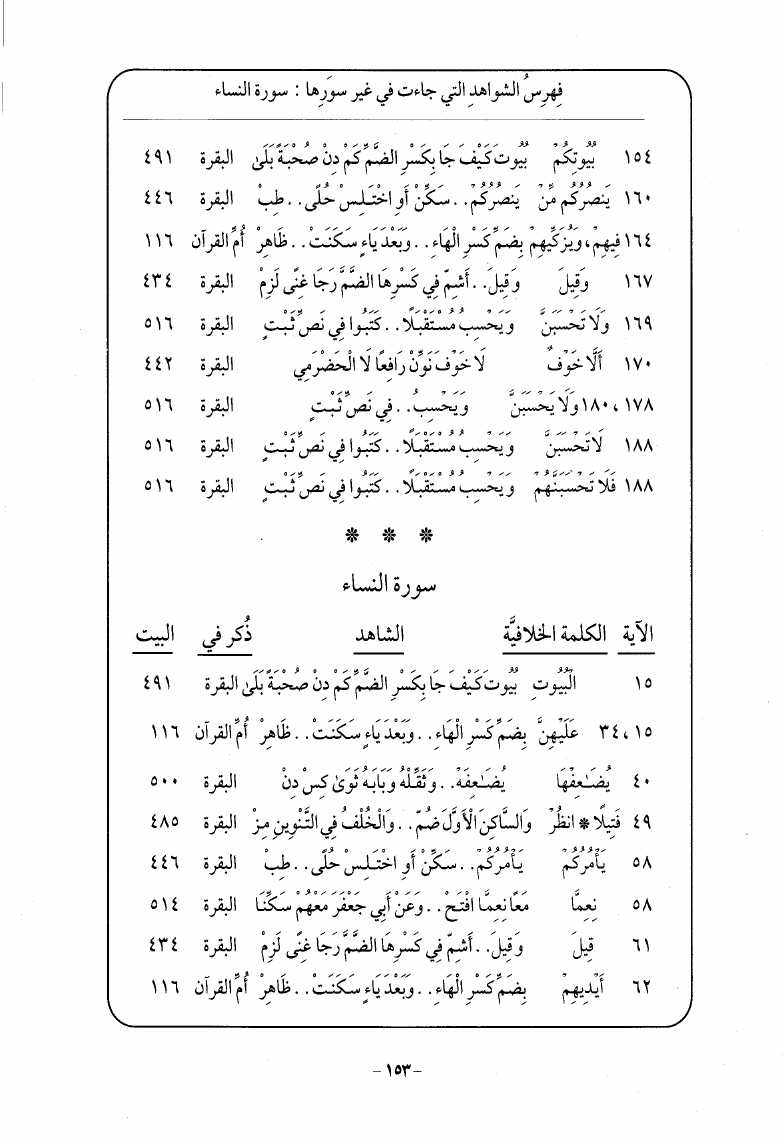 فِهرِسُ الشواهدِ التي جاءت في غير سوَرِها : سورة النساء
١٥٤ بُيُوتِكُمْ بُيُوتَ كَيْفَ جَا بِكَسْرِ الضَّمِّ كَمْ دِنْ صُحْبَةً بَلَىٰ البقرة ٤٩١
١٦٠ يَنصُرْكُم مِّنْ يَنصُرْكُمْ. . سَكِّنْ أَوِ اخْتَلِسْ حُلًى . . طِبْ البقرة ٤٤٦
١٦٤ فِيهِمْ، وَيُزَكِّيهِمْ بِضَمِّ كَسْرِ الْهَاءِ . . وَبَعْدَ يَاءٍ سَكَنَتْ . . ظَاهِرْ أُمِّ القرآن ١١٦
١٦٧ وَقِيلَ وَقِيلَ. . أَشِمّ فِي كَسْرِهَا الضَّمَّ رَجَا غِنًى لَزِمْ البقرة ٤٣٤
١٦٩ وَلَا تَحْسَبَنَّ وَيَحْسِبُ مُسْتَقْبَلًا . . كَتَبُوا فِي نَصِّ ثَبْتٍ البقرة ٥١٦
١٧٠ أَلَّا خَوْفٌ لَا خَوْفَ نَوِّنْ رَافِعًا لَا الْحَضْرَمِي البقرة ٤٤٢
١٧٨ ، ١٨٠ وَلَا يَحْسَبَنَّ وَيَحْسِبُ. . فِي نَصِّ ثَبْتٍ البقرة ٥١٦
١٨٨ لَا تَحْسَبَنَّ وَيَحْسِبُ مُسْتَقْبَلًا . . كَتَبُوا فِي نَصِّ ثَبْتٍ البقرة ٥١٦
١٨٨ فَلَا تَحْسَبَنَّهُم وَيَحْسِبُ مُسْتَقْبَلًا . . كَتَبُوا فِي نَصِّ ثَبْتٍ البقرة ٥١٦
* * *
سورة النساء
الآية الكلمة الخلافيَّة الشاهد ذُكر في البيت
١٥ الْبُيُوتِ بُيُوتَ كَيْفَ جَا بِكَسْرِ الضَّمِّ كَمْ دِنْ صُحْبَةً بَلَىٰ البقرة ٤٩١
١٥، ٣٤ عَلَيْهِنَّ بِضَمِّ كَسْرِ الْهَاءِ . . وَبَعْدَ يَاءٍ سَكَنَتْ . . ظَاهِرْ أُمِّ القرآن ١١٦
٤٠ يُضَـٰعِفْهَا يُضَـٰعِفَهُ. . وَثَقِّلْهُ وَبَابَهُ ثَوَىٰ كِسْ دِنْ البقرة ٥٠٠
٤٩ فَتِيلًا * انظُرْ وَالسَّاكِنَ الْأَوَّلَ ضُمّ. . وَالْخُلْفُ فِي التَّنْوِينِ مِزْ البقرة ٤٨٥
٥٨ يَأْمُرُكُمْ يَأْمُرُكُمْ. . سَكِّنْ أَوِ اخْتَلِسْ حُلًى . . طِبْ البقرة ٤٤٦
٥٨ نِعِمَّا مَعًا نِعِمَّا افْتَحْ . . وَعَنْ أَبِي جَعْفَرَ مَعْهُمْ سَكِّنَا البقرة ٥١٤
٦١ قِيلَ وَقِيلَ. . أَشِمّ فِي كَسْرِهَا الضَّمَّ رَجَا غِنًى لَزِمْ البقرة ٤٣٤
٦٢ أَيْدِيهِمْ بِضَمِّ كَسْرِ الْهَاءِ . . وَبَعْدَ يَاءٍ سَكَنَتْ . . ظَاهِرْ أُمِّ القرآن ١١٦
-١٥٣-